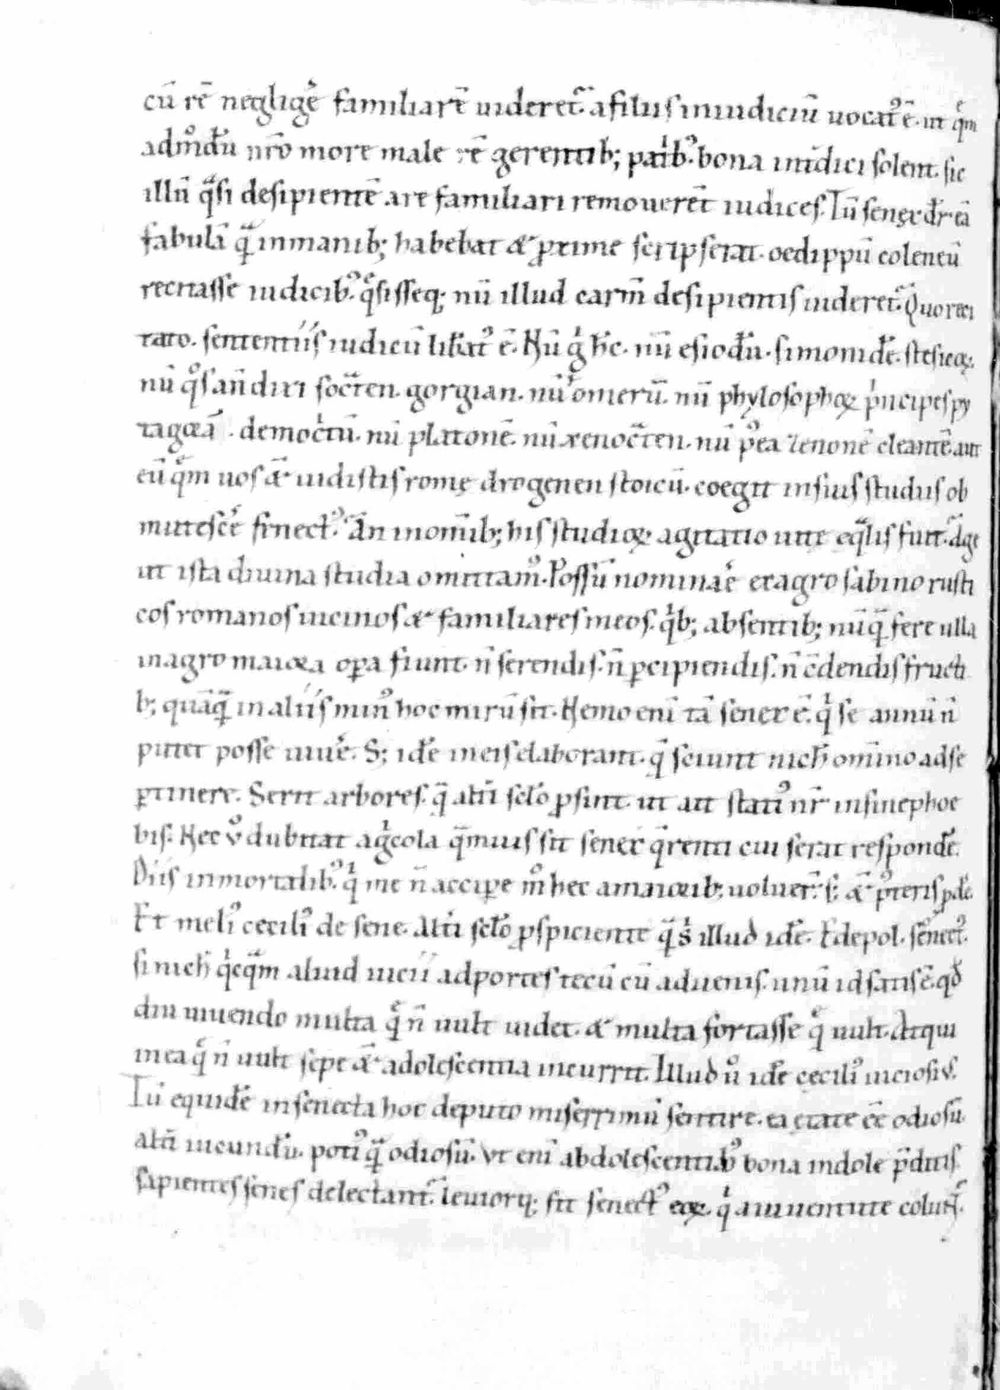 cū rē neglige᷒ familiarē uideret᷑. a filiis in iudiciū uocat᷒ ē. ut qͤm
admͦdū nr̄o more male rē gerentib; patͥb᷒. bona int͛dici solent. sic
illū qͣsi desipientē a re familiari remouerēt iudices. Tū senex dr̄. eā
fabulā qͣ in manib; habebat & ꝓxime scripserat. oedippū coleneū
recitasse iudicib᷒. qͤsisseq; nū illud carm̄ desipientis uideret᷑. Quo reci
tato. sententiis iudicū lib͛at᷒ ē. Nū gͥ hc̄. nū esiodū. simonidē. stesicoꝝ.
nū qͦs an̄ dixi socͣten. gorgian. nū omerū. nū phylosophoꝝ pͥncipes py
tagorā. democͥtū. nū platonē. nū xenocͣten. nū p᷒ea zenonē cleantē. aut
eū qͤm uos & uidistis rome diogenen stoicū. coegit in suis studiis ob
mutesce᷒ senect᷒. An in om̄ib; his studioꝝ agitatio uite eqͣlis fuit. Age
ut ista diuina studia omittam᷒. Possū nominare᷒ ex agro sabino rusti
cos romanos uicinos & familiares meos. qͥb; absentib; nūqͣ fere ulla
in agro maiora oꝑa fiunt. n̄ serendis. n̄ ꝑcipiendis. n̄ cōdendis fructi
b; quāqͣ in aliis min᷒ hoc mirū sit. Nemo eni᷑ tā senex ē. qͥ se annū n̄
putet posse uiue᷒. S; idē in eis elaborant. qͣ sciunt nich̄ om̄ino ad se
ꝑtinere. Serit arbores. qͣ alt͛i sclo̅ ꝓsint. ut ait stati᷒ nr̄ in sinephoe
bis. Nec uͦ dubitat agͥcola qͣmuis sit senex qͣrenti cui serat respondē.
Diis inmortalib᷒. qͥ me n̄ accipe mͦ hec a maiorib; uoluer̄. s; & p᷒teris pdē.
Et meli᷒ cecili᷒ de sene. alt͛i sclo̅ ꝓspiciente qͣ illud idē. Edepol. senect᷒.
si nich̄ qͥcqͣm aliud uicii adportes tecū cū aduenis. unū id sat is ē. qd̄
diu uiuendo multa qͤ n̄ uult uidet. & multa fortasse qͤ uult. Atqui
in ea qͤ n̄ uult sepe & adolescentia incurrit. Illud uͦ idē cecili᷒ uiciosi᷒.
Tū equidē in senecta hoc deputo miserrimū sentire. ea etate eē odiosū
alt͛i iucundū. poti᷒ qͣ odiosū. Vt eni᷑ abdolescentib᷒ bona indole p̄ditis.
sapientes senes delectant᷑. leuiorq; fit senect᷒ eoꝝ. qͥ a iuuentute colunt᷑.